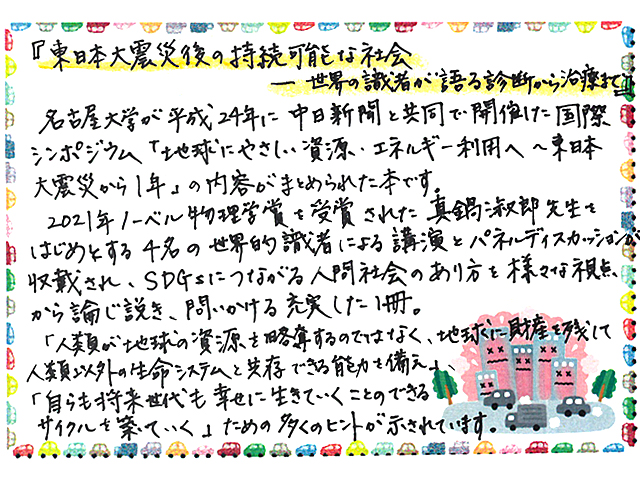 『東日本大震災後の持続可能な社会
― 世界の識者が語る診断から治療まで』
名古屋大学が平成24年に中日新聞と共同で開催した国際
シンポジウム「地球にやさしい資源・エネルギー利用へ～東日本
大震災から1年」の内容がまとめられた本です。
2021年ノーベル物理学賞を受賞された真鍋淑郎先生を
はじめとする4名の世界的識者による講演とパネルディスカッションが
収載され、SDGsにつながる人間社会のあり方を様々な視点
から論じ説き、問いかける充実した1冊。
「人類が地球の資源を略奪するのではなく、地球に財産を残して
人類以外の生命システムと共存できる能力を備え」、
「自らも将来世代も幸せに生きていくことのできる
サイクルを築いていく」ための多くのヒントが示されています。